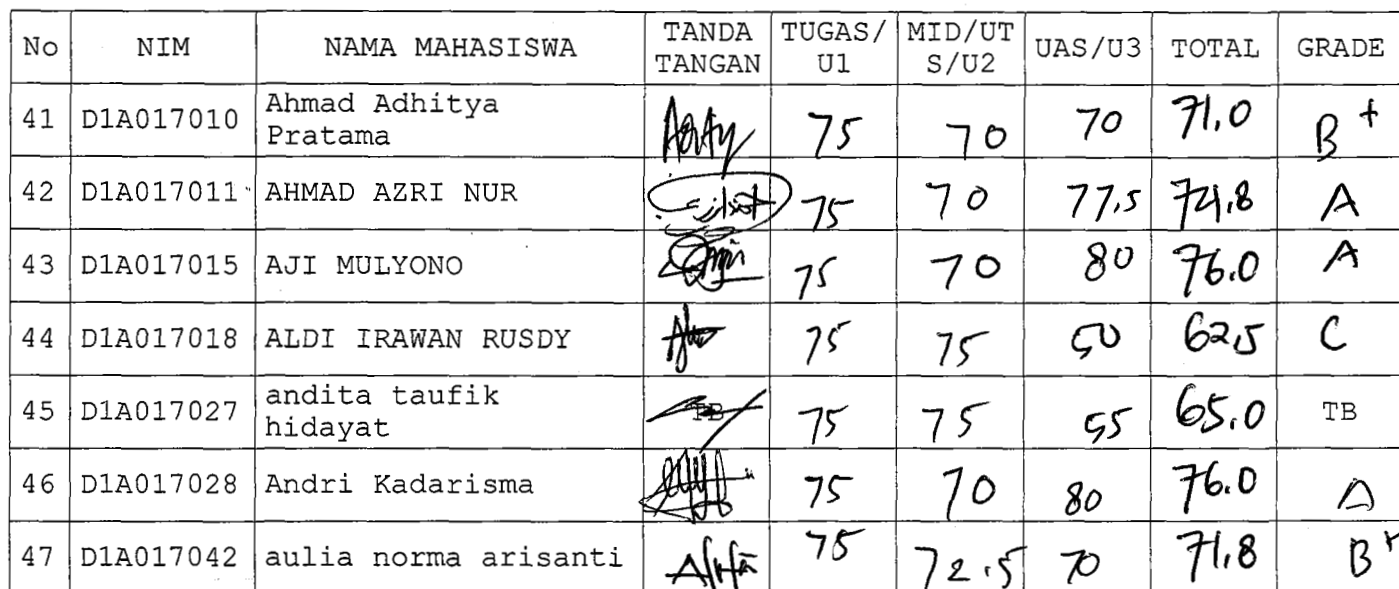 No NIM NAMA MAHASISWA TANDA TANGAN TUGAS/U1 MID/UTS/U2 UAS/U3 TOTAL GRADE
41 D1A017010 Ahmad Adhitya Pratama 75 70 70 71,0 B+
42 D1A017011 AHMAD AZRI NUR 75 70 77,5 74,8 A
43 D1A017015 AJI MULYONO 75 70 80 76,0 A
44 D1A017018 ALDI IRAWAN RUSDY 75 75 50 62,5 C
45 D1A017027 andita taufik hidayat TB 75 75 55 65,0 TB
46 D1A017028 Andri Kadarisma 75 70 80 76,0 A
47 D1A017042 aulia norma arisanti 75 72,5 70 71,8 B+